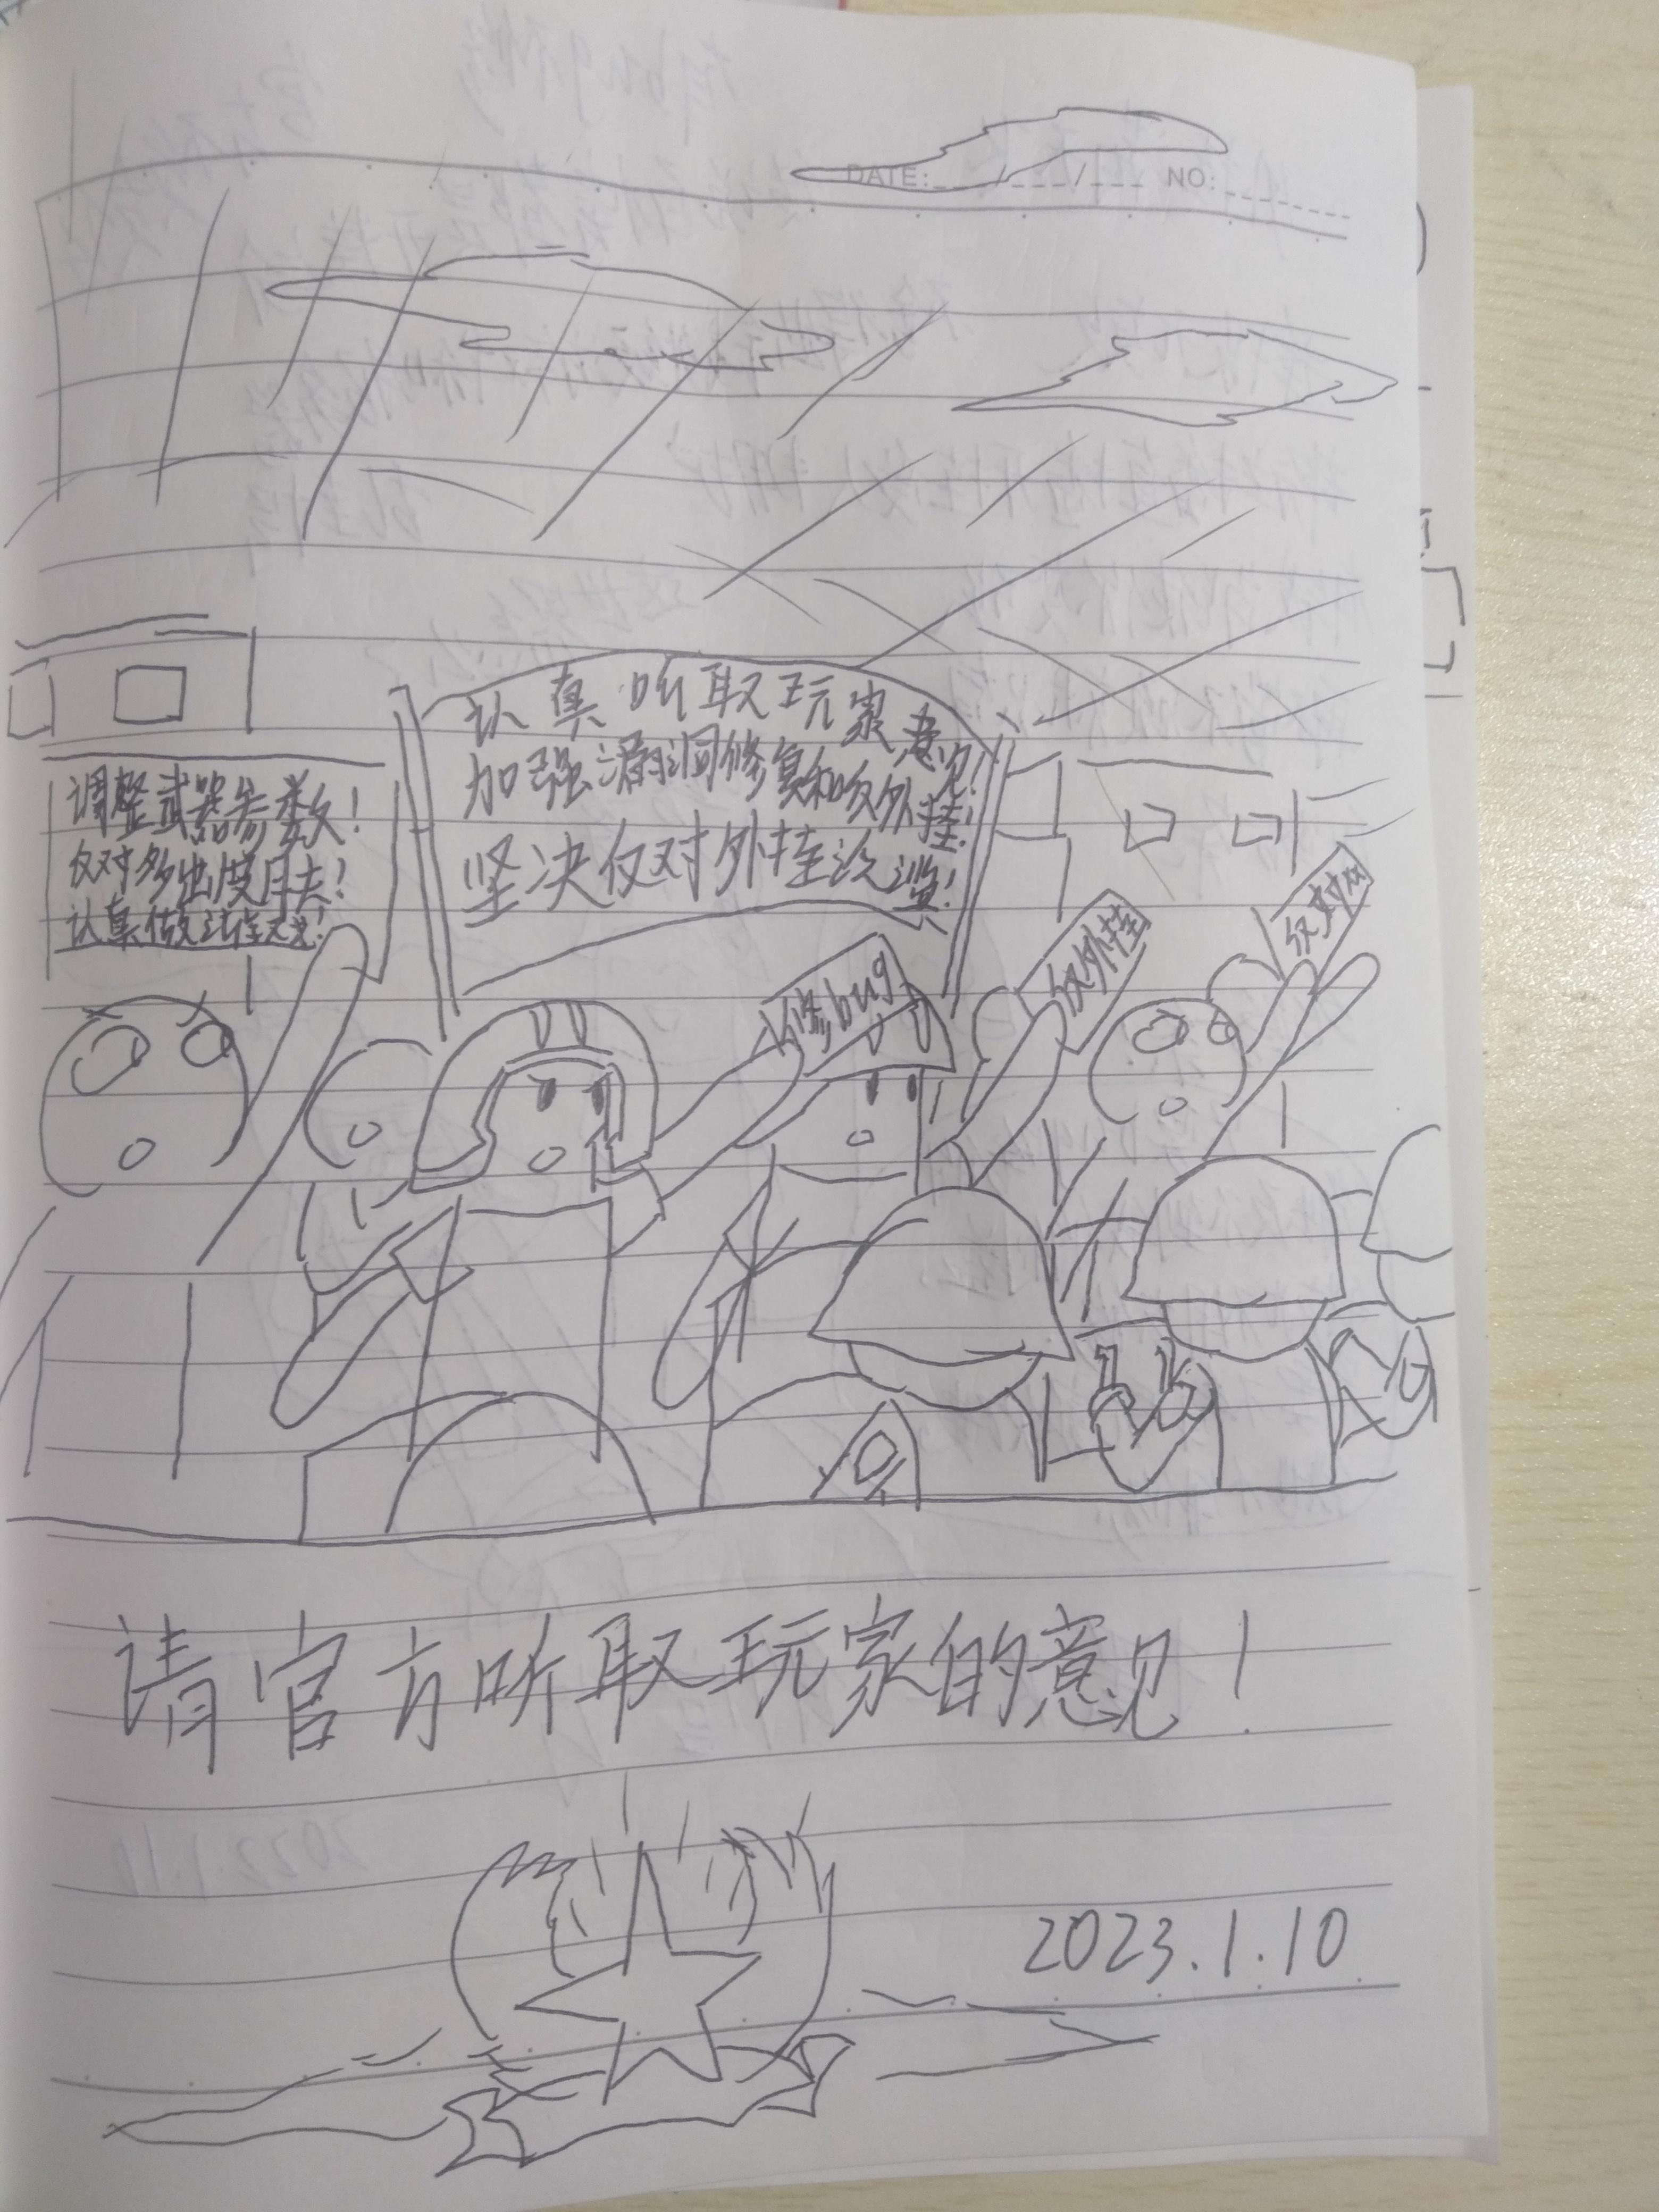 DATE: / / NO:
认真听取玩家意见!
加强漏洞修复和反外挂!
坚决反对外挂泛滥!
调整武器参数!
反对多出度月夫!
认真做试玩!
修bug
反外挂
反对
请官方听取玩家的意见!
2023.1.10